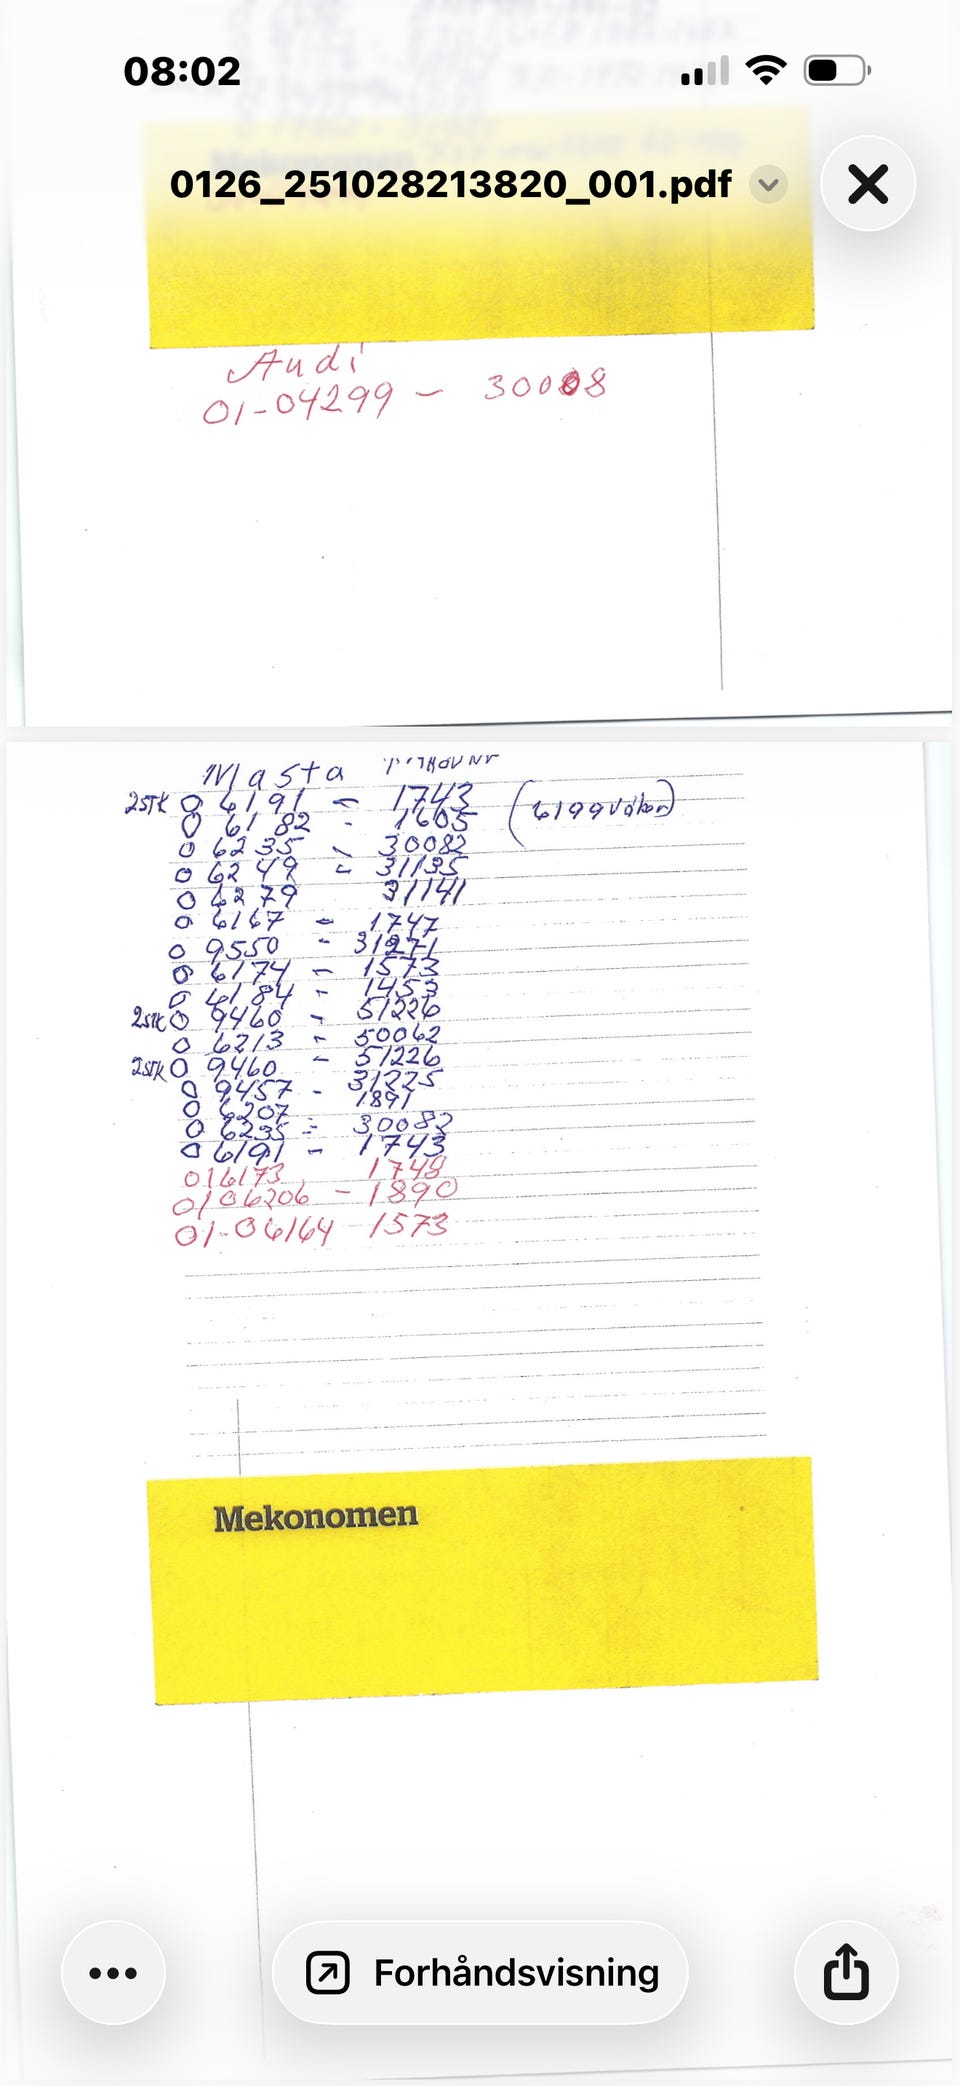 08:02
0126_251028213820_001.pdf
Audi
01-04299 - 30008
Masta
2STK 0 6191 - 1743 (6199
0 6182 - 1605
0 6235 - 30082
0 6249 - 31135
0 6279 31141
0 6167 - 1747
0 9550 - 31271
0 6174 - 1573
0 6184 - 1453
2STK 0 9460 - 51226
0 6213 - 50062
2STK 0 9460 - 51226
0 9457 - 31225
0 6207 1891
0 6235 = 30082
0 6191 - 1743
016173 1748
0106206 - 1890
01-06164 1573
Mekonomen
Forhåndsvisning